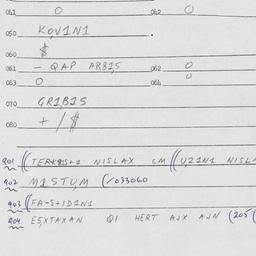 061 0 062 0
050 KQV1N1
060 $
061 - QAP ARB1S 062 0
063 0 064 0
070 GR1B1S
080 + / $
901 (( NISLAX CM ((UZ1N1
902 M1STUM (1033060
903 ((FA-S+ID1N1
904 ESXTAXAN Q1 HERT AJX AJN (205(